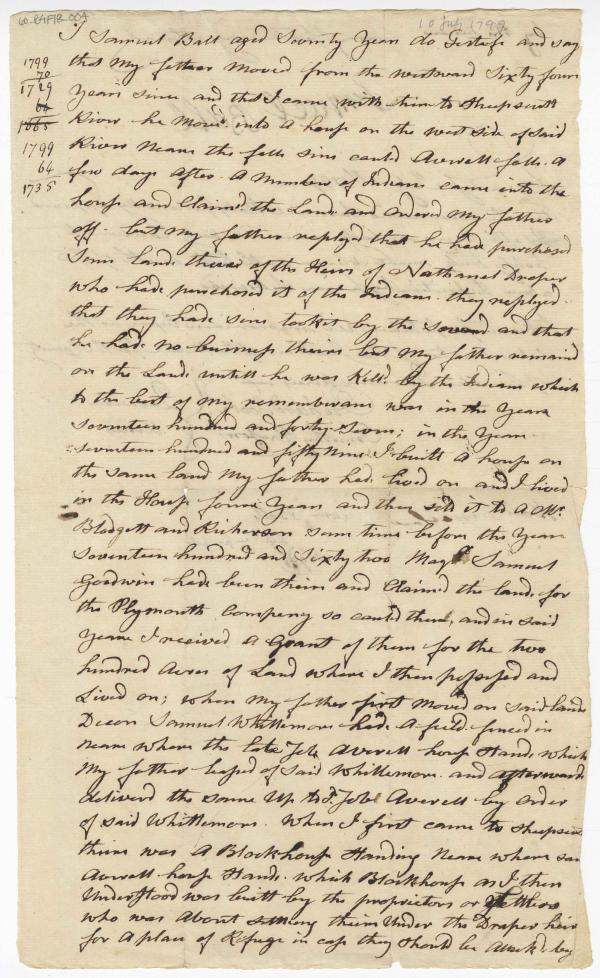 60-R4F1B-004
10 July 1799
I Samuel Ball aged Seventy Years do Testafy and say
that My father Moved from the westward Sixty four
Years since and that I came with him to Sheepscutt
River he Moved into A house on the west side of said
River Neare the falls sins cauld Averell falls. A
few days after. A Number of Indians came into the
house and Claimd the Land and ordered My father
off. but My father replyed that he had purchased
Some land theire of the Heirs of Nathanel Draper
who had purchased it of the Indians. they replyed
that they had sins took it by the sword and that
he had no buiness theire but My father remaind
on the Land untill he was Kelld by the Indians which
to the best of my rememberans was in the Years
seventeen hundred and forty-Seven; in the Year
seventeen hundred and fifty Nine I built A house on
the same land My father had lived on and I lived
in the House foure Years and then sold it to A Mr.
Blodgett and Rickerson some time before the Year
Seventeen hundred and Sixty two Majr. Samuel
Goodwin had been theire and Claimd the land for
the Plymouth Company so cauld then, and in said
Yeare I received A Grant of them for the two
hundred Acres of Land where I then possesed and
Lived on; when My father first Moved on said lands
Decon Samuel Whittemore had A field fenced in
neare where the late Job Averell house stands which
My father leased of said Whittemore and afterwards
deliverd the same Up to Job Averell by order
of said Whittemore. When I first came to Sheepscut
theire was A Blockhouse Standing Neare where said
Averell house Stands. which Blockhouse as I then
Understood was built by the proprietors or settlers
who was About settling theire Under the Draper heirs
for A place of Refuge in case they should be Attackd by
1799
70
1729
64
1665
1799
64
1735